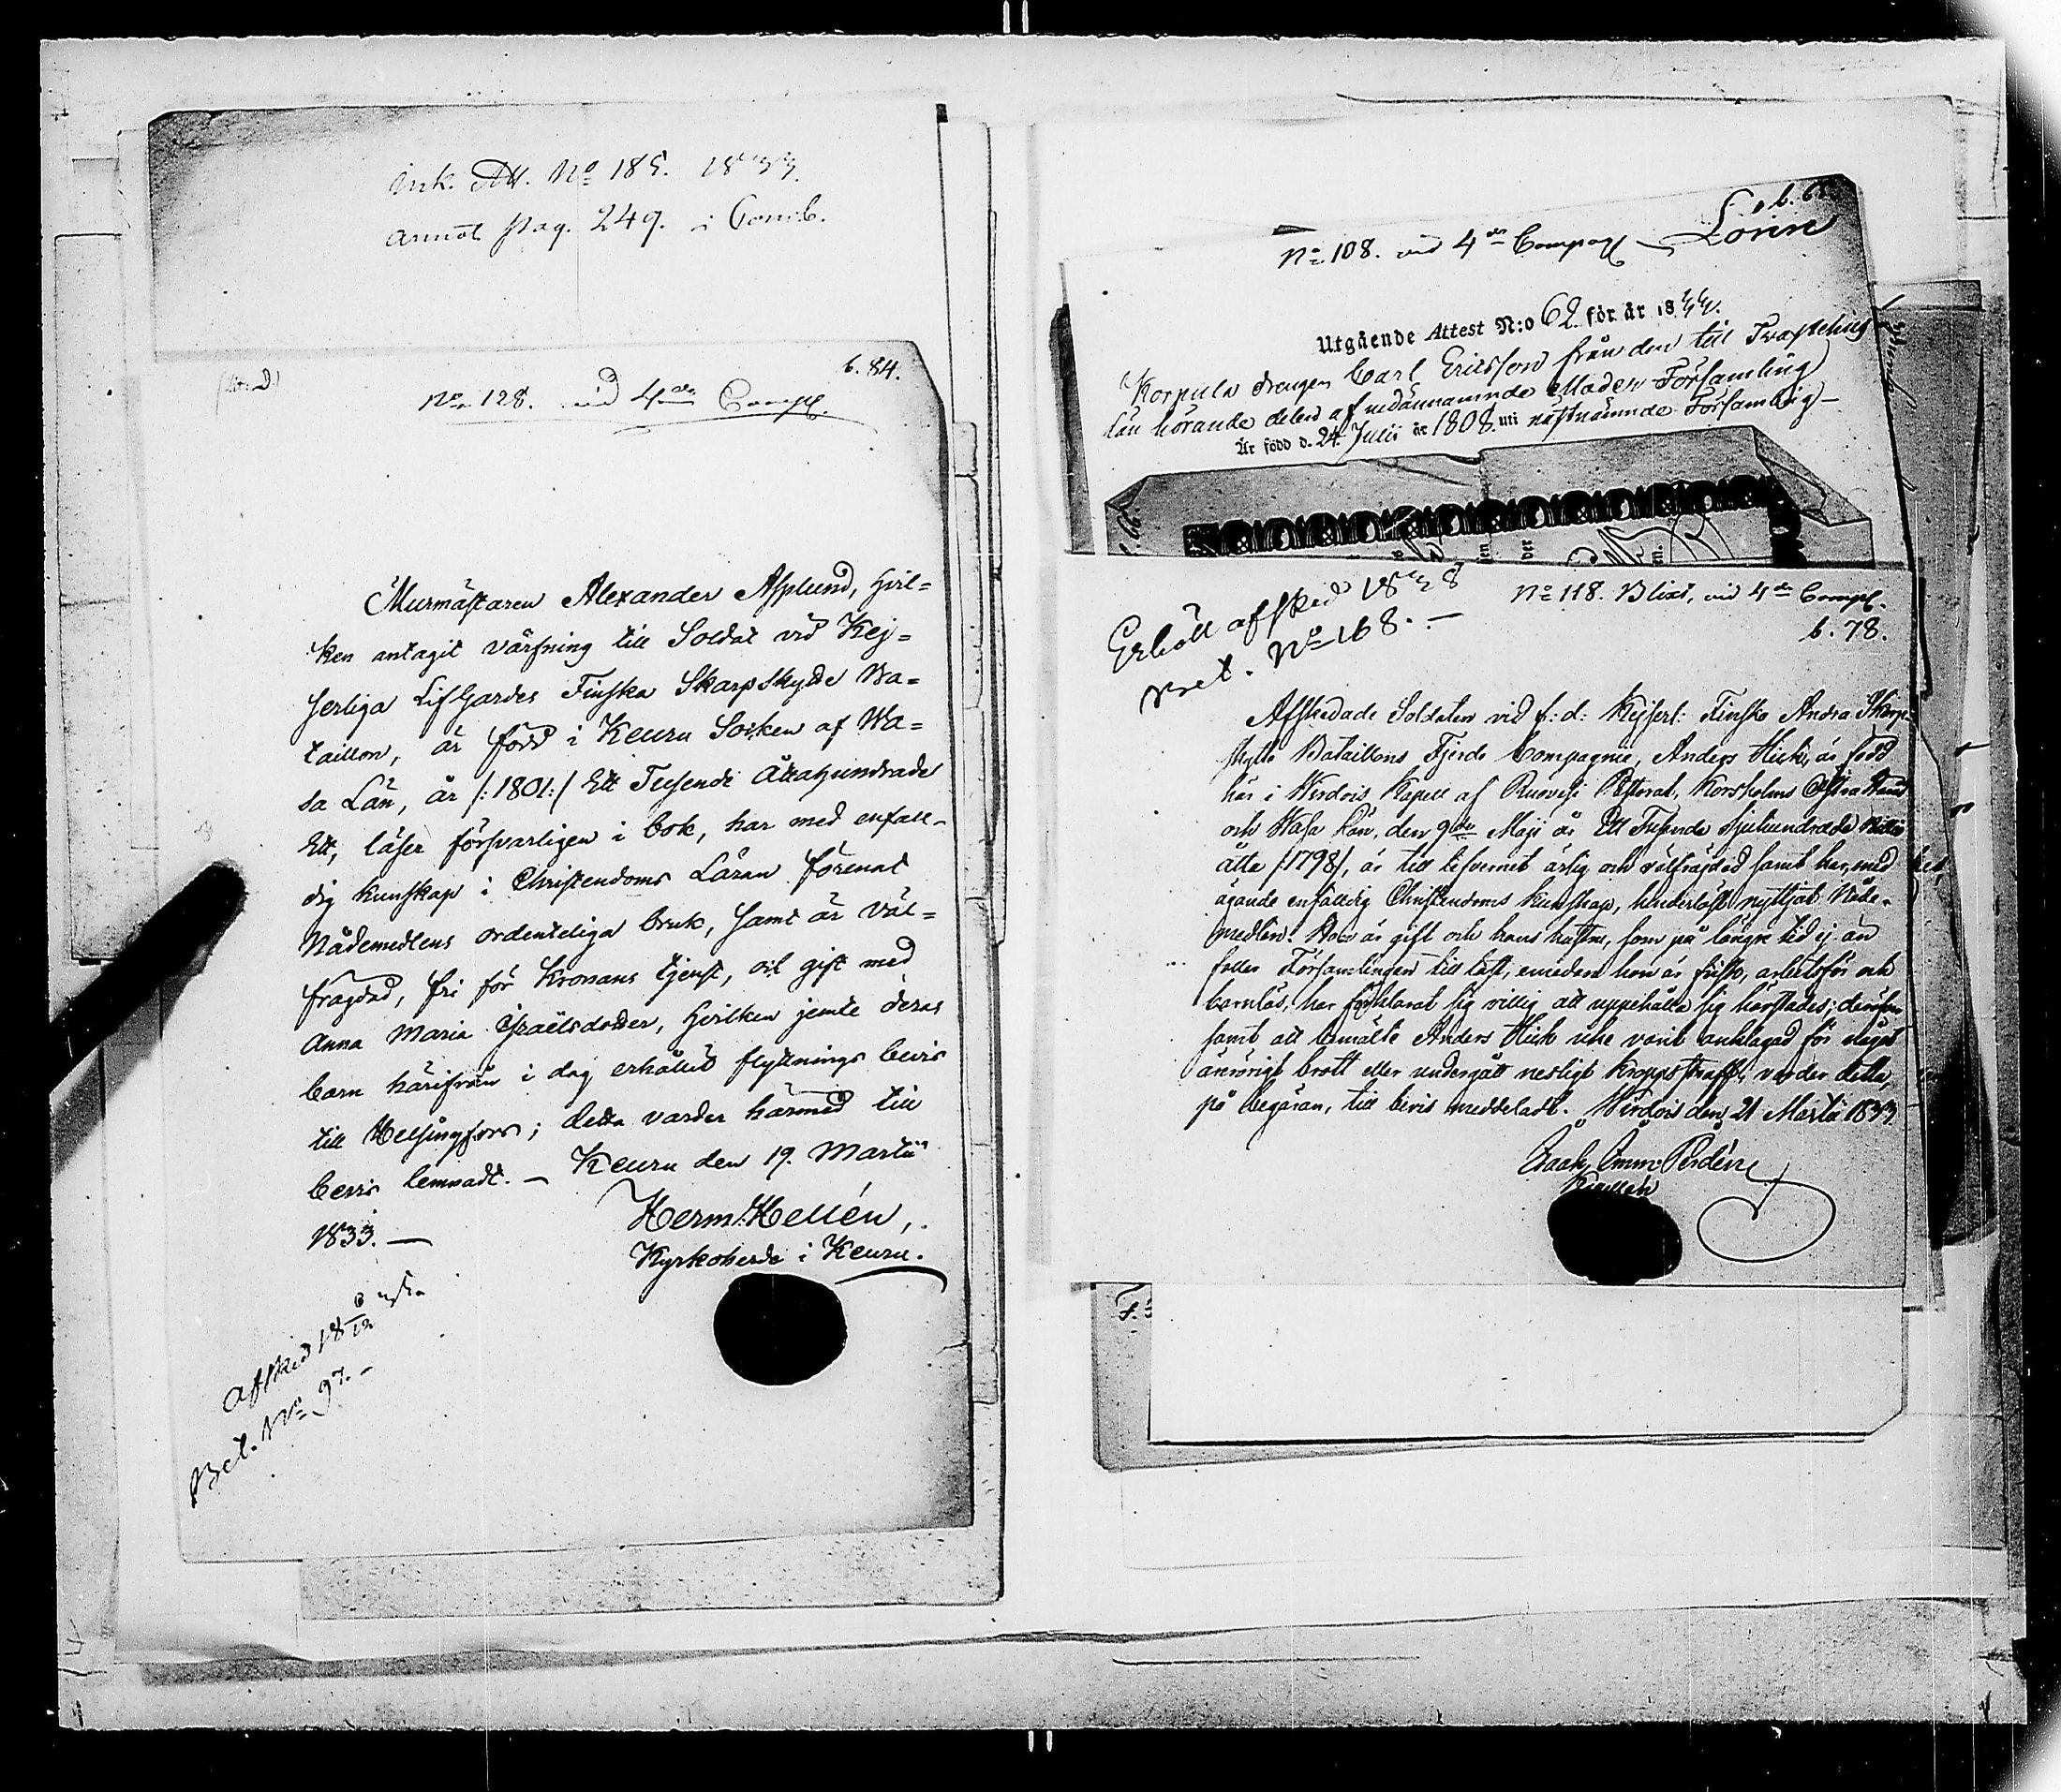 Ink. Att. No 185. 1833.
annot pag. 249. i Comb.
b. 84.
No 128. vid 4de Comp.
Murmästaren Alexander Asplund, hvil=
ken antagit värfning till Soldat vid Kej=
serliga LifGardes Finska Skarpskytte Ba=
taillon, är född i Keuru Socken af Wa=
sa Län, år /:1801:/ Ett Tusende Åttahundrade
Ett, läser försvarligen i bok, har med enfall=
dig kunskap i Christendoms Läran förenat
Nådemedlens ordenteliga bruk, samt är väl=
frägdad, fri för Kronans tjenst, och gift med
Anna Maria Israëlsdotter, hvilken jemte deras
barn härifrån i dag erhållit flyttnings bevis
till Helsingfors; detta varder härmed till
bevis lemnadt. — Keuru den 19. Martii
1833. —
Herm: Hellén,
Kyrkoherde i Keuru.
Afsked 18
Bet. No 97. —
b. 68.
No 108. vid 4de Comp. Lorin
Utgående Attest N:o 62 för år 1844.
Korpula drengen Carl Ericsson från den till Tavastehus
län hörande delen af nedannämnde Församling
Är född d. 24 Julii år 1808 uti nästnämnde Församling —
Erhöll afsked 1838
Bet. No 168. —
No 118. Blixt, vid 4de Comp.
b. 78.
Afskedade Soldaten vid f: d: Kejserl: Finska Andra Skarp-
skytte Bataillons Fjerde Compagnie, Anders Hick, är född
här i Wirdois Kapell af Ruovesi Pastorat, Korsholms Östra
och Wasa Län, den 9de Maji år Ett Tusende Sjuhundrade Nittio
åtta /:1798/, är till lefvernet ärlig och välfrägdad samt har, med
ägande enfaldig Christendoms kunskap, hinderlöst nyttjat Nåde-
medlen. Han är gift och hans hustru, som på längre tid ej än
faller Församlingen till last, emedan hon är frisk, arbetsför och
barnlös, har förklarat sig villig att uppehålla sig härstädes;
samt att bemälte Anders Hick icke varit anklagad för något
ärerörigt brott eller undergått nesligt kroppsstraff, varder detta,
på begäran, till bevis meddeladt. Wirdois den 21 Martii 1833.
Isaak Imm: Perdén